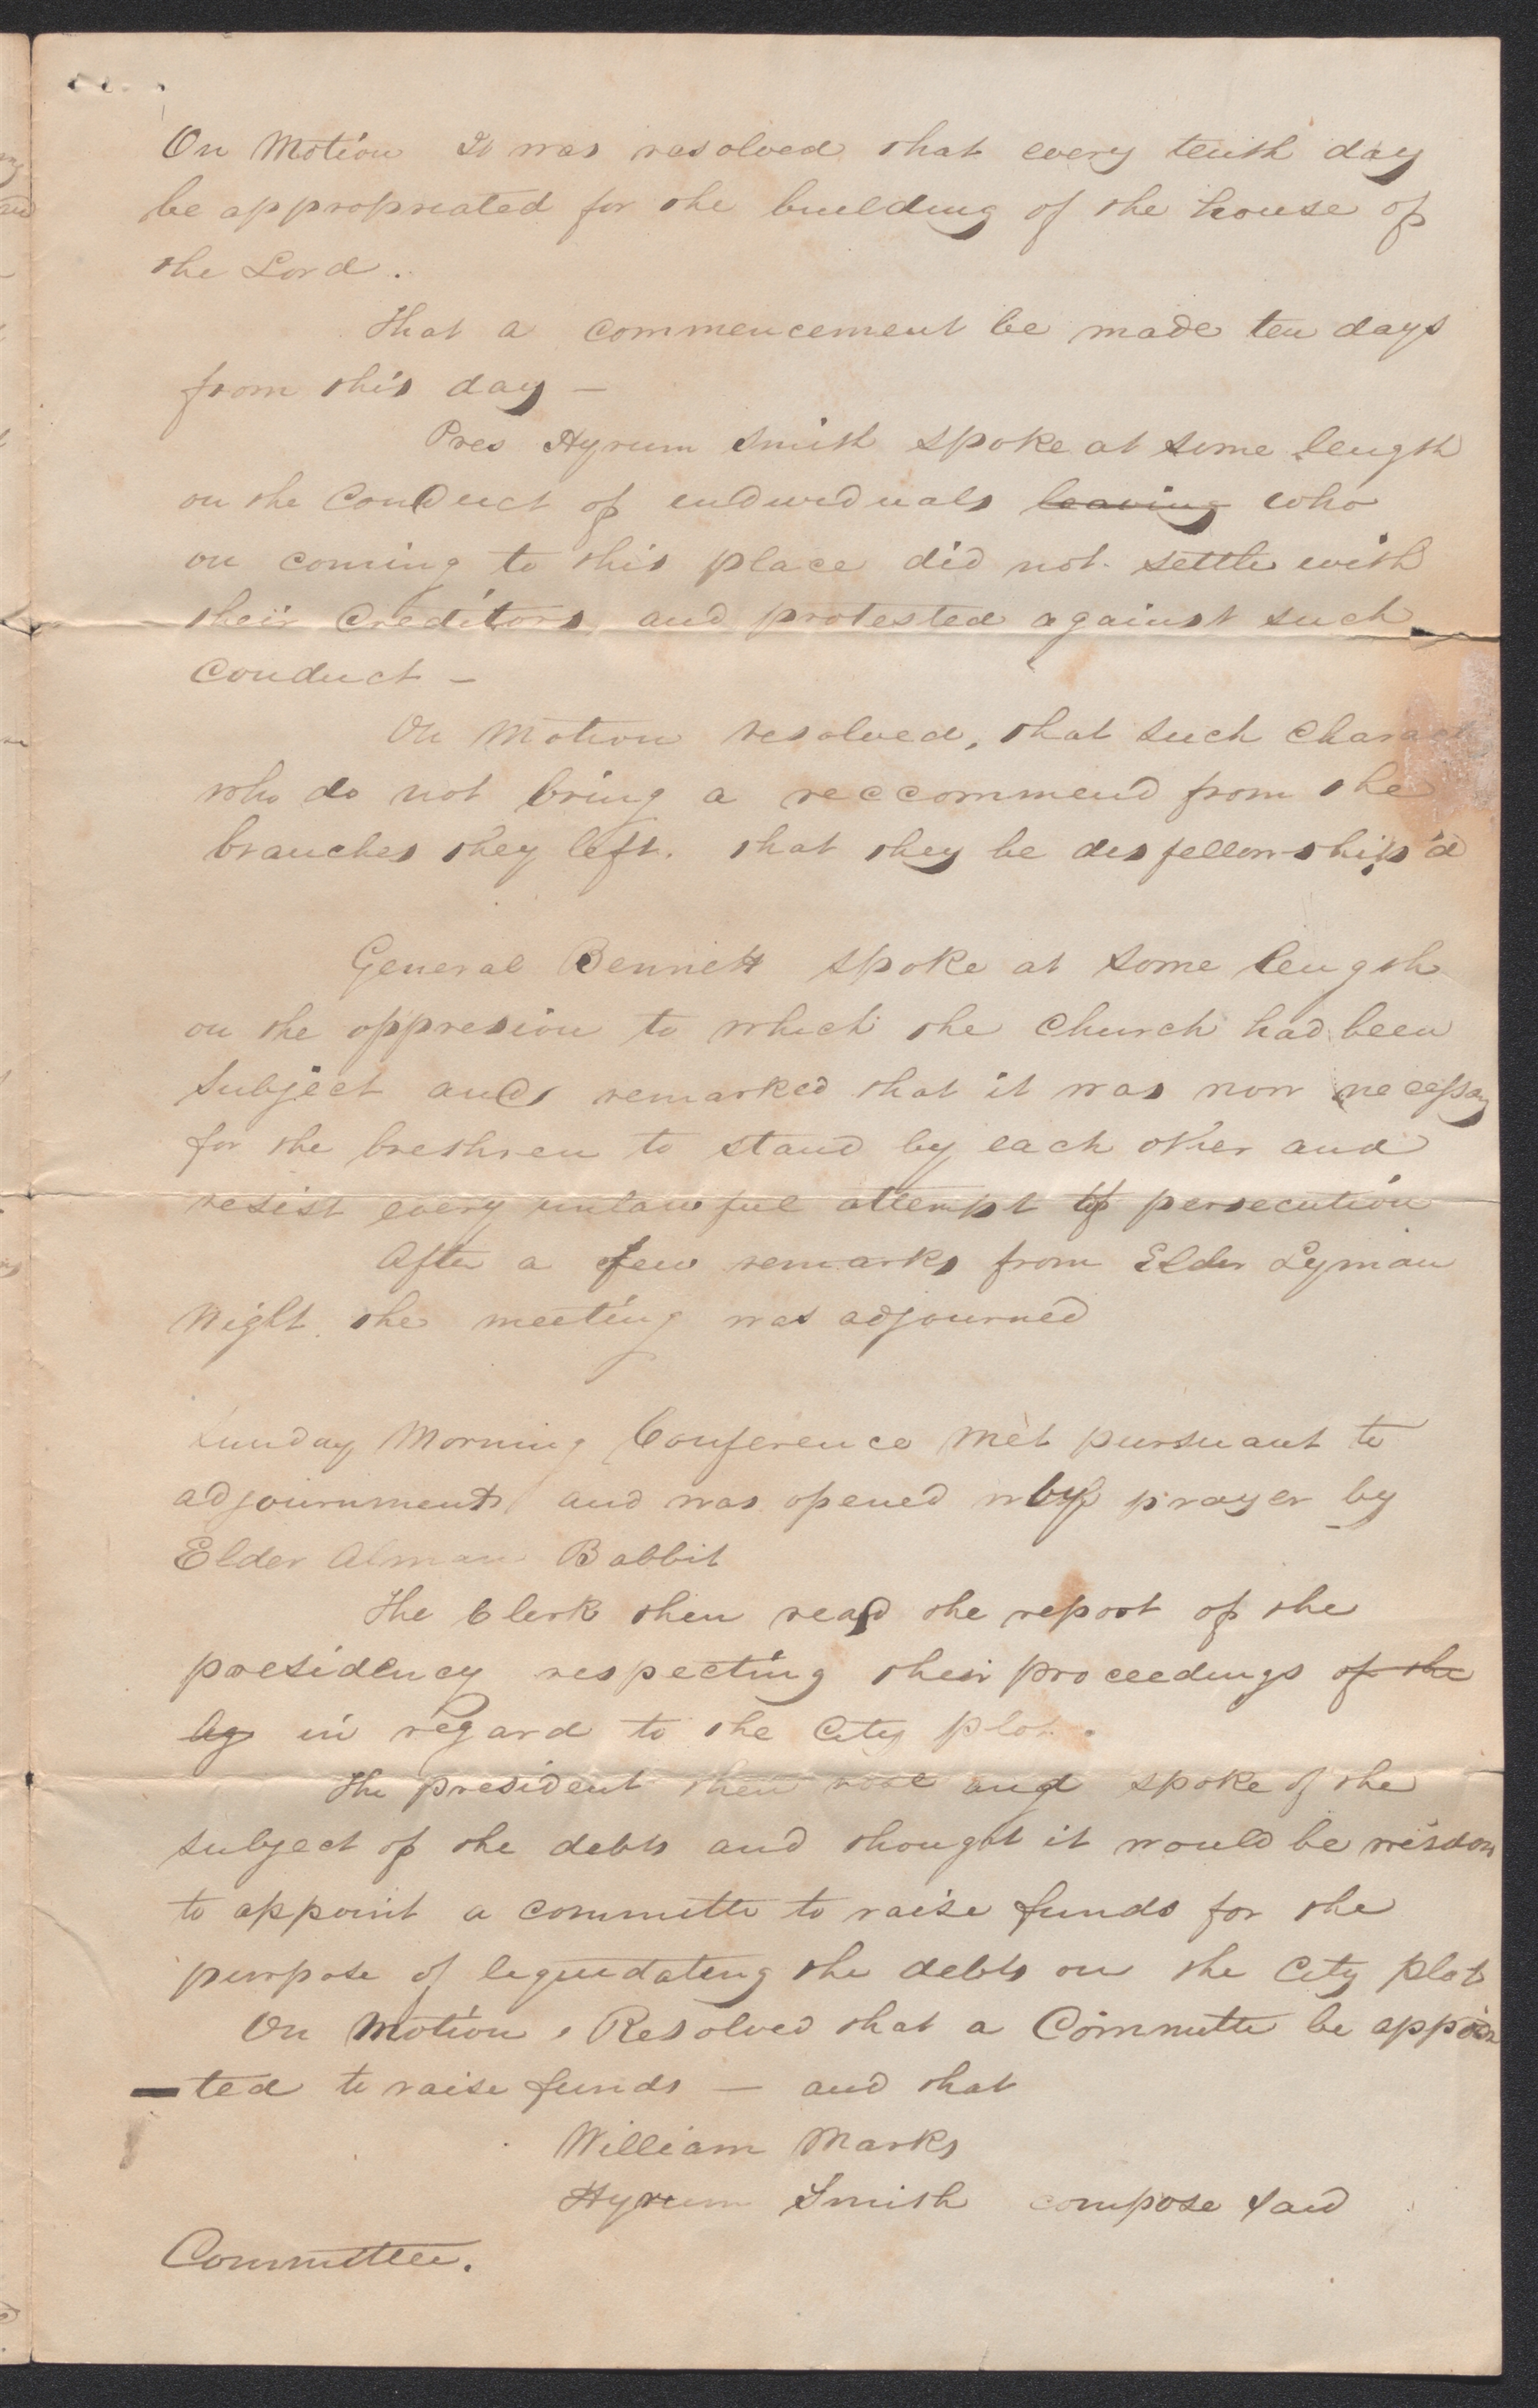 On Motion It was resolved that every tenth day
be appropriated for the building of the house of
the Lord.
That a commencement be made ten days
from this day —
Pres Hyrum Smith spoke at some length
on the conduct of individuals leaving who
on coming to this place did not settle with
their creditors, and protested against such
conduct —
On Motion resolved, that such Charact
who do not bring a reccommend from the
branches they left. that they be disfellowship'd
General Bennett spoke at some length
on the oppresion to which the Church had been
subject and remarked that it was now necessay
for the brethren to stand by each other and
resist every unlawful attempt of persecution
After a few remarks from Elder Lyman
Wight the meeting was adjourned
Sunday Morning Conference met pursuant to
adjournment and was opened by prayer by
Elder Alman Babbit
The Clerk then read the report of the
presidency respecting their proceedings of the
in regard to the City plot.
The president then rose and spoke of the
subject of the debts and thought it would be wisdom
to appoint a committe to raise funds for the
purpose of liquidating the debts on the City plot
On Motion, Resolved that a Committe be appoin
-ted to raise funds — and that
William Marks
Hyrum Smith compose said
Committee.